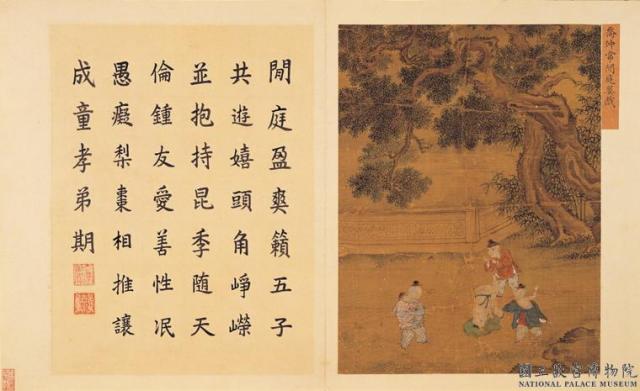 喬仲常閒庭嬰戲
閒庭盈爽籟五子
共遊嬉頭角崢嶸
並抱持昆季隨天
倫鍾友愛善性泯
愚癡梨棗相推讓
成童孝弟期
國立故宮博物院
NATIONAL PALACE MUSEUM